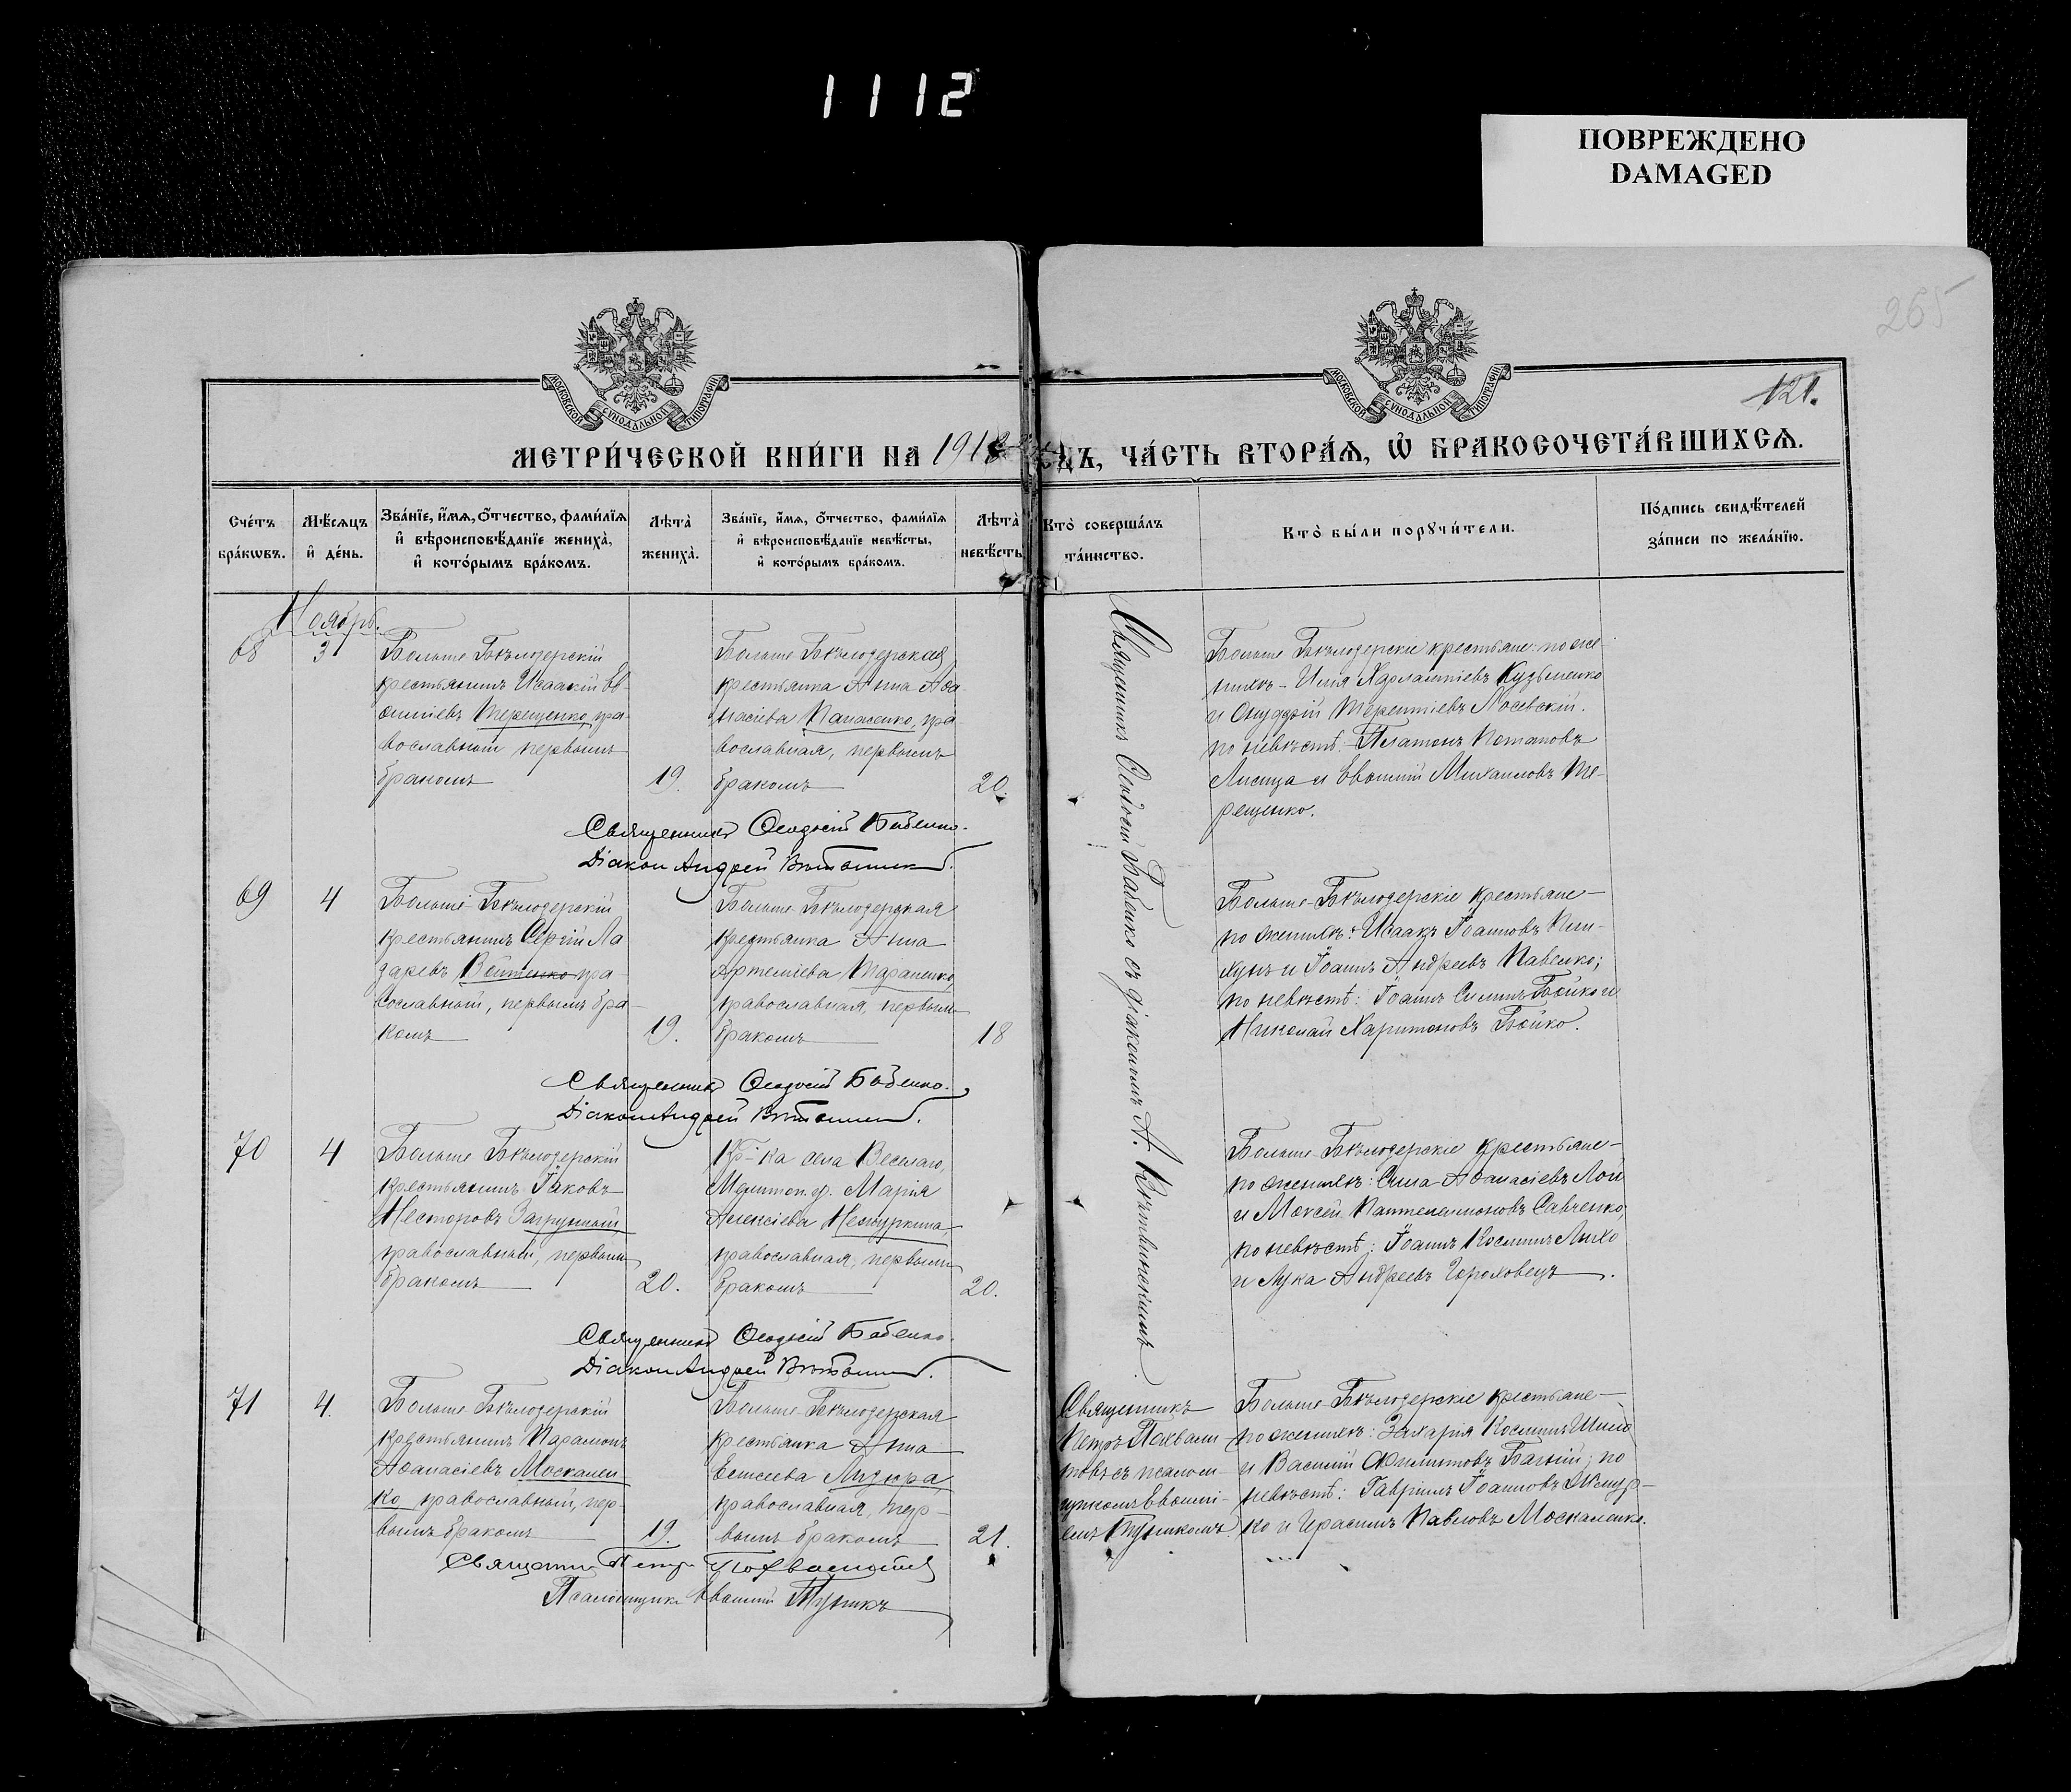 1112
ПОВРЕЖДЕНО
DAMAGED
265
121.
МОСКОВСКОЙ СУНОДАЛЬНОЙ ТИПОГРАФІИ
МОСКОВСКОЙ СУНОДАЛЬНОЙ ТИПОГРАФІИ
МЕТРИ́ЧЕСКОЙ КНИ́ГИ НА 191 ЧА́СТЬ ВТОРА́Ѧ, Ѽ БРАКОСОЧЕТА́ВШИХСѦ.
Сче́тъ бра́кѡвъ.
Мѣ́сяцъ и҆ де́нь.
Зва́нїе, и҆́мѧ, ѻ҆́тчество, фами́лїѧ
и҆ вѣроисповѣ́данїе жениха̀,
и҆ кото́рымъ бра́комъ.
Лѣта̀ жениха̀.
Зва́нїе, и҆́мѧ, ѻ҆́тчество, фами́лїѧ
и҆ вѣроисповѣ́данїе невѣ́сты,
и҆ кото́рымъ бра́комъ.
Лѣта̀ невѣ́сты
Кто̀ соверша́лъ
та́инство.
Кто̀ бы́ли порꙋчи́тели.
По́дпись свидѣ́телей
за́писи по жела́нїю.
Ноябрь.
68
3
Больше Бѣлозерскій
крестьянинъ Исаакій Ев-
ѳиміевъ Терещенко, пра-
вославный первымъ
бракомъ
19.
Больше Бѣлозерская
крестьянка Анна Аѳа-
насіева Панасенко, пра
вославная, первымъ
бракомъ
20.
Священникъ Ѳеодосій Бабенко съ діакономъ А.
Больше Бѣлозерскіе крестьяне: по же-
нихѣ - Илія Харлампіевъ Кузьменко
и Онуфрій Терентіевъ Лосевскій.
по невѣстѣ: Платонъ Потаповъ
Лисица и Евѳимій Михаиловъ Те-
рещенко.
Священникъ Ѳеодосій Бабенко.
Діаконъ Андрей
69
4
Больше-Бѣлозерскій
крестьянинъ Сергій Ла
заревъ Вейтенко пра
вославный, первымъ бра-
комъ
19.
Больше-Бѣлозерская
крестьянка Анна
Артеміева Тараненко
православная, первымъ
бракомъ
18
Больше-Бѣлозерскіе крестьяне-
по женихѣ: Исаакъ Іоанновъ
и Іоаннъ Андреевъ Павенко;
по невѣстѣ: Іоаннъ Силинъ Бойко и
Николай Харитоновъ Бойко.
Священникъ Ѳеодосій Бабенко.
Діаконъ Андрей
70
4
Больше Бѣлозерскій
крестьянинъ Іаковъ
Несторовъ Загрунный
православный, первымъ
бракомъ
20.
Кр-ка села Веселаго,
Мелитоп. у. Марія
Алексіева
православная, первымъ
бракомъ
20.
Больше-Бѣлозерскіе крестьяне-
по женихѣ: Сила Аѳанасіевъ Лой
и Моисей Пантелеимоновъ Савченко;
по невѣстѣ: Іоаннъ Косминъ Лихо
и Лука Андреевъ Гороховецъ.
Священникъ Ѳеодосій Бабенко.
Діаконъ Андрей
71
4.
Больше Бѣлозерскій
крестьянинъ Парамонъ
Аѳанасіевъ Москален-
ко, православный, пер-
вымъ бракомъ
19.
Больше-Бѣлозерская
крестьянка Анна
Елисеева Лидира,
православная, пер-
вымъ бракомъ
21.
Священникъ
Петръ Похвали-
товъ съ псалом-
щикомъ Евѳимі-
емъ Туникомъ.
Больше-Бѣлозерскіе крестьяне-
по женихѣ: Захарія Косминъ Шило
и Василій Филиповъ; по
невѣстѣ: Гавріилъ Іоанновъ
ко и Герасимъ Павловъ Москаленко.
Священникъ Петръ Похвалитовъ
Псаломщикъ Евѳимій Туникъ